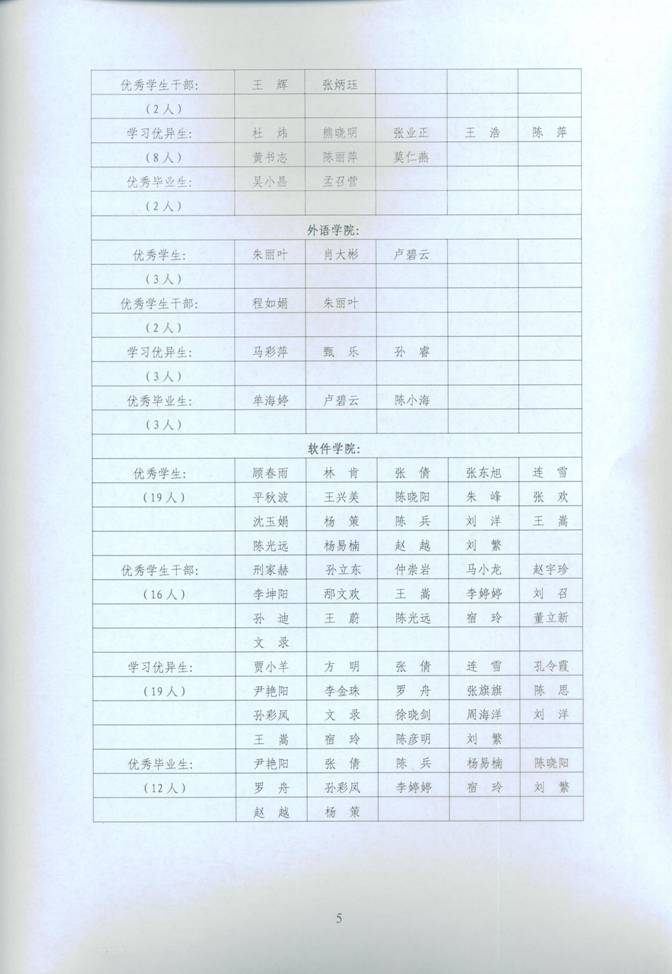 优秀学生干部: 王 辉 张炳珏
(2人)
学习优异生: 杜 炜 熊晓明 张业正 王 浩 陈 萍
(8人) 黄书志 陈丽萍 莫仁燕
优秀毕业生: 吴小昌 孟召营
(2人)
外语学院:
优秀学生: 朱丽叶 肖大彬 卢碧云
(3人)
优秀学生干部: 程如娟 朱丽叶
(2人)
学习优异生: 马彩萍 甄 乐 孙 睿
(3人)
优秀毕业生: 单海婷 卢碧云 陈小海
(3人)
软件学院:
优秀学生: 顾春雨 林 肯 张 倩 张东旭 连 雪
(19人) 平秋波 王兴美 陈晓阳 朱 峰 张 欢
沈玉娟 杨 策 陈 兵 刘 洋 王 嵩
陈光远 杨易楠 赵 越 刘 繁
优秀学生干部: 刑家赫 孙立东 仲崇岩 马小龙 赵宇珍
(16人) 李坤阳 那文欢 王 嵩 李婷婷 刘 召
孙 迪 王 蔚 陈光远 宿 玲 董立新
文 录
学习优异生: 贾小羊 方 明 张 倩 连 雪 孔令霞
(19人) 尹艳阳 李金珠 罗 舟 张旗旗 陈 思
孙彩凤 文 录 徐晓剑 周海洋 刘 洋
王 嵩 宿 玲 陈彦明 刘 繁
优秀毕业生: 尹艳阳 张 倩 陈 兵 杨易楠 陈晓阳
(12人) 罗 舟 孙彩凤 李婷婷 宿 玲 刘 繁
赵 越 杨 策
5